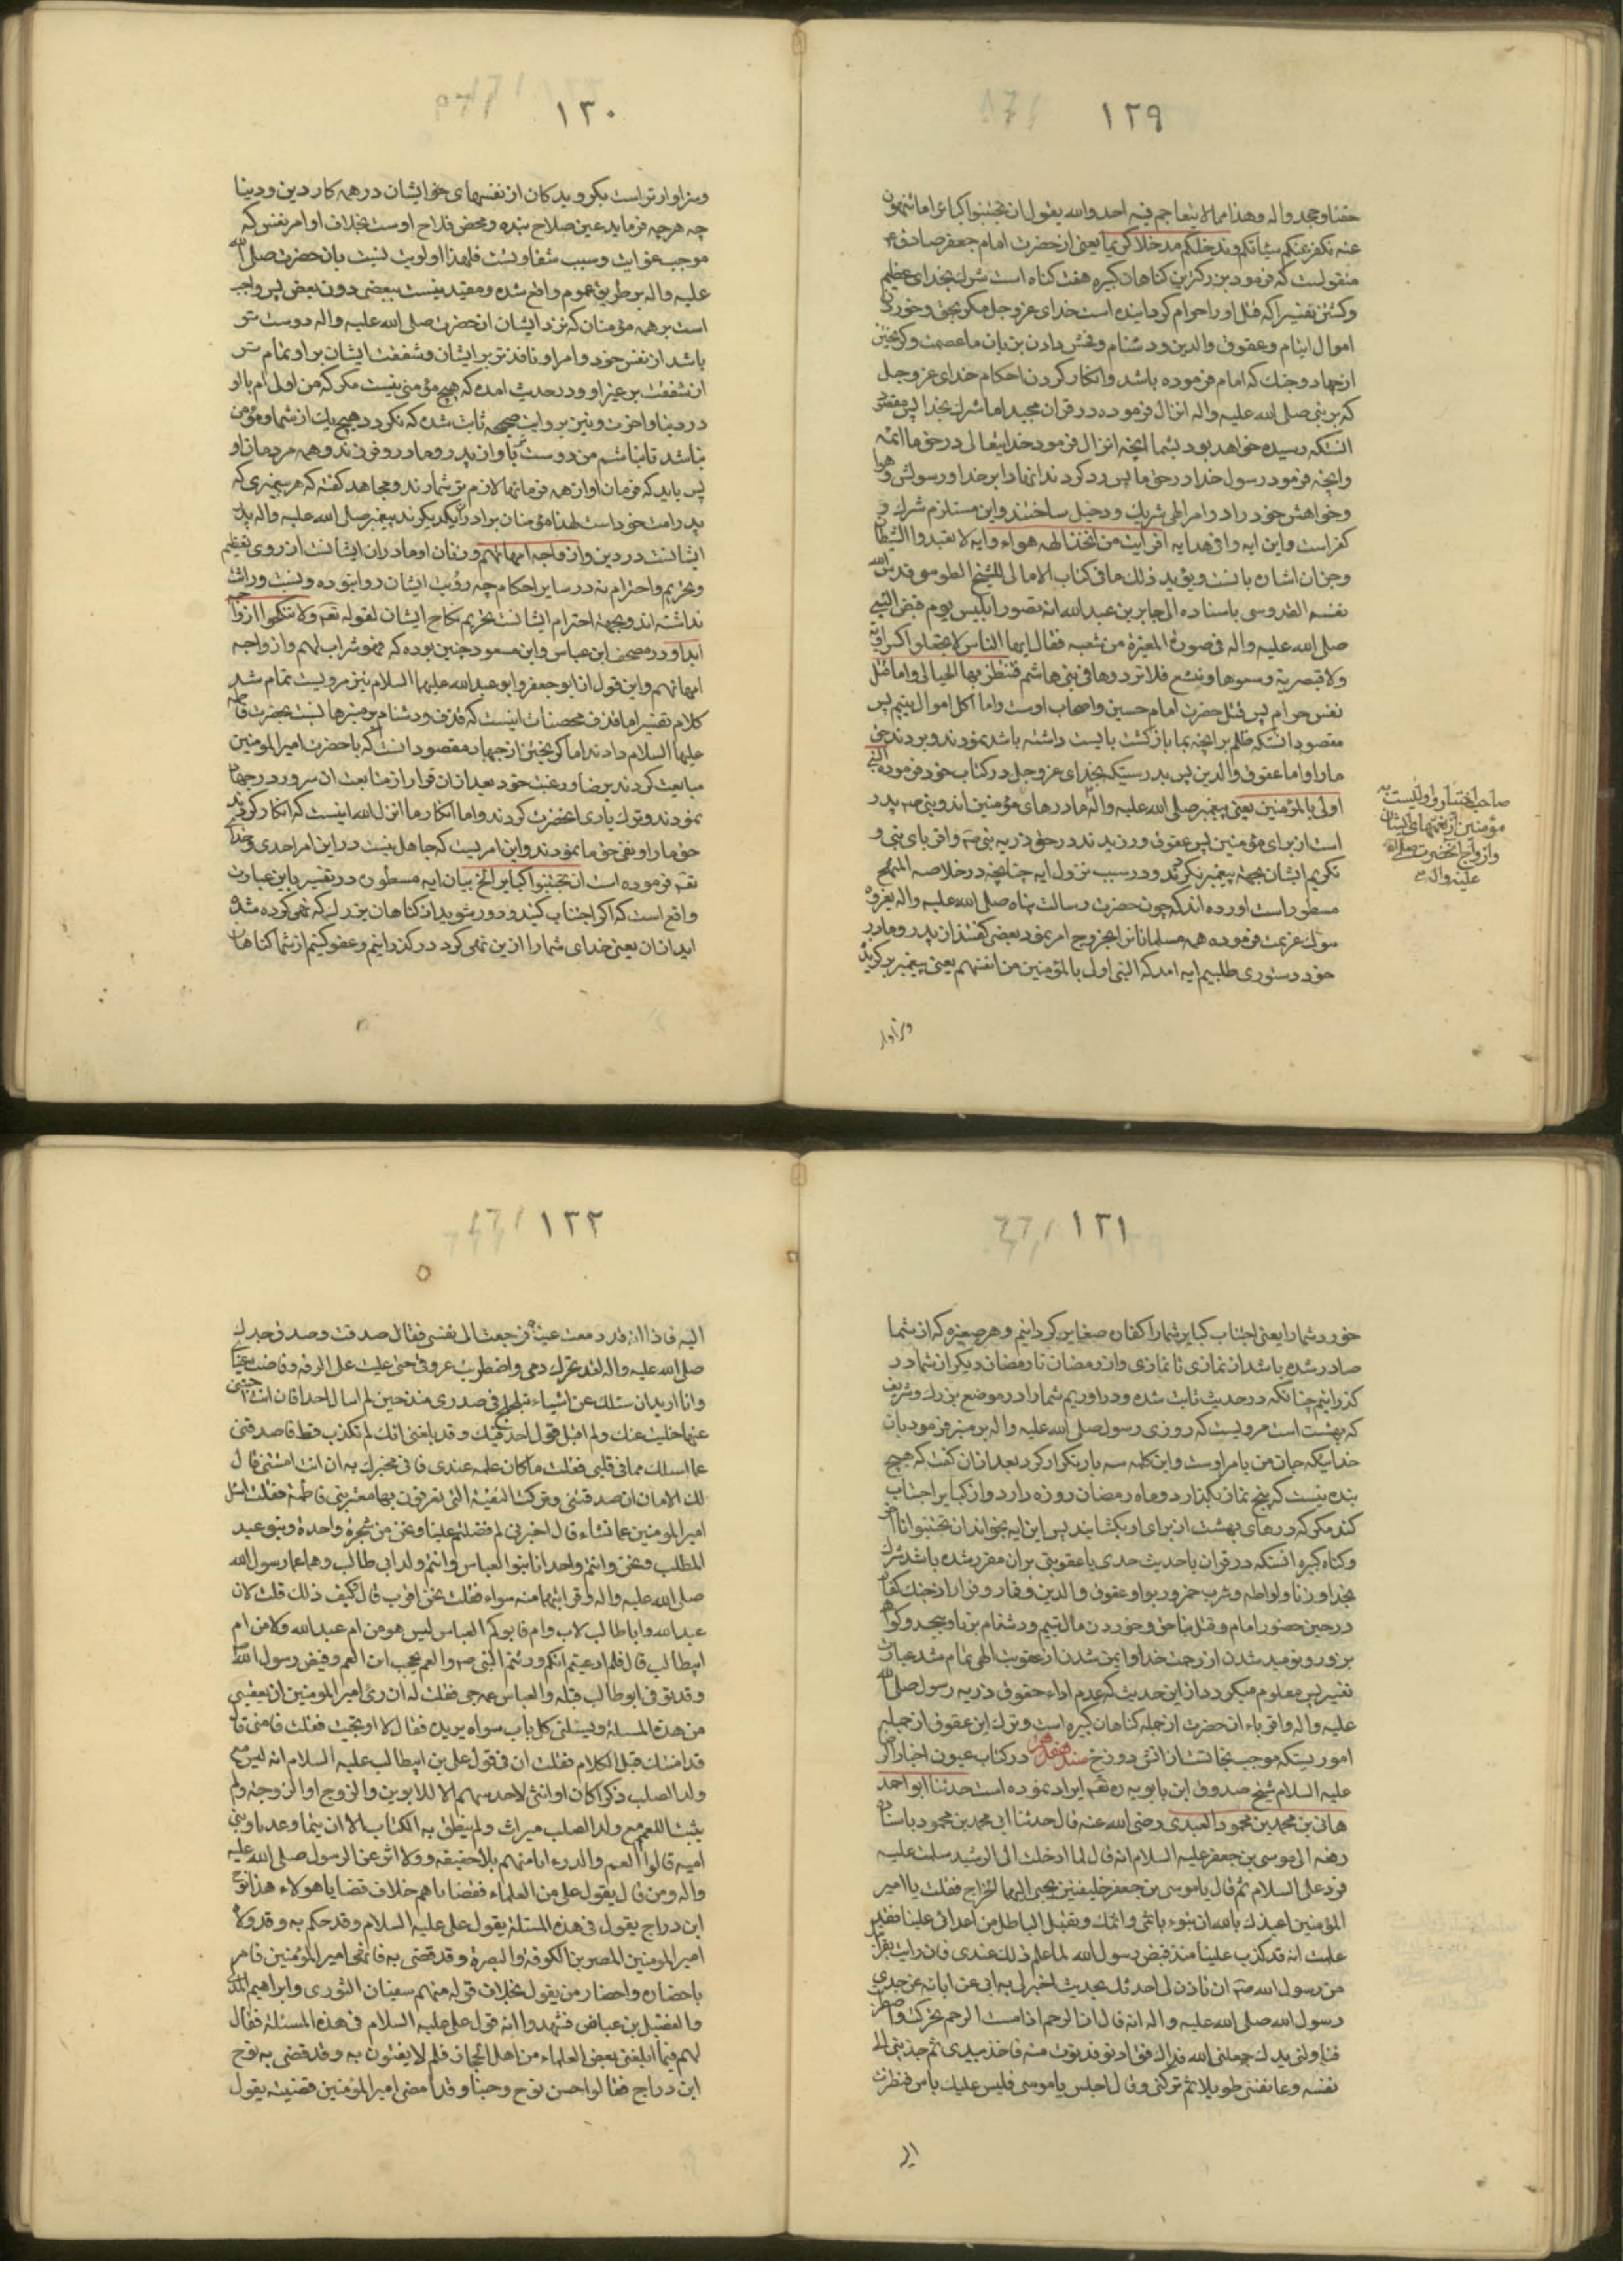 ١٢٩
حقنا وجحدوا له وهذا مما لا يتعاجم فيه احد والله يقول ان تجتنبوا كبائر ما تنهون
عنه نكفر عنكم سيئاتكم وندخلكم مدخلا كريما يعنى از حضرت امام جعفر صادق ع
منقولست كه فرمود بزرگترين كناهان كبيره هفت كناه است شرك بخداى عظيم
وكشتن نفسيرا كه قتل او را حرام كردانيده است خداى عز وجل مكر بحق وخوردن
اموال ايتام وعقوق والدين ودشنام وفحش دادن بزنان با عصمت وكريختن
از جهاد وجنك كه امام فرموده باشد وانكار كردن احكام خداى عز وجل
كه بر نبى صلى الله عليه واله انزال فرموده در قران مجيد اما شرك بخدا پس مقصود
انستكه رسيده خواهد بود بشما انچه انزال فرمود خدايتعالى در حق ما ائمه
وانچه فرمود رسول خدا در حق ما پس رد كردند انها را بر خدا ورسولش وهوا
وخواهش خود را در امر الهى شريك ودخيل ساختند واين مستلزم شرك و
كفر است واين ايه وافى هدايه افرايت من اتخذ الهه هواه وايه لا تعبدوا الشيطان
وجزان اشاره بانست ويؤيد ذلك ما فى كتاب الامالى للشيخ الطوسى قدس الله
نفسه القدوسى باسناده الى جابر بن عبد الله انه تصور ابليس يوم قبض النبى
صلى الله عليه واله فى صورة المغيرة بن شعبه فقال ايها الناس لا تجعلوا كسروانية
ولا قيصرية وسعوها تتسع فلا تردوها فى بنى هاشم فتنتظر بها الحبالى واما قتل
نفس حرام پس قتل حضرت امام حسين واصحاب اوست واما اكل اموال يتيم پس
مقصود انستكه ظلم بر انچه بما بازكشت بايست داشته باشد نمودند وبردند حق
ما را واما عقوق والدين پس بدرستيكه خداى عز وجل در كتاب خود فرموده النبى
اولى بالمؤمنين يعنى پيغمبر صلى الله عليه واله مادرهاى مؤمنين اند ونبى ص پدر
است از براى مؤمنين پس عقوق ورزيدند در حق ذريه نبى ص واقرباى نبى و
تكريم ايشان بجهة پيغمبر نكردند ودر سبب نزول ايه چنانچه در خلاصه المنهج
مسطور است اورده اند كه چون حضرت رسالت پناه صلى الله عليه واله بغزوه
تبوك عزيمت فرموده همه مسلمانانرا بخروج امر نمود بعضى كفتند از پدر ومادر
خود دستورى طلبيم ايه امد كه النبى اولى بالمؤمنين من انفسهم يعنى پيغمبر بر كرويد
وسزاوار
صاحب اختيار واوليست به
مؤمنين از نفسهاى ايشان
وازواج انحضرت صلى الله
عليه واله
١٣٠
وسزاوارتر است بكرويدكان از نفسهاى خود ايشان در همه كار دين ودنيا
چه هرچه فرمايد عين صلاح بنده ومحض فلاح اوست بخلاف اوامر نفس كه
موجب غوايت وسبب شقاوتست فلهذا اولويت نسبت بانحضرت صلى الله
عليه واله بر طريق عموم واقع شده ومقيد نيست ببعضى دون بعض پس واجب
است بر همه مؤمنان كه نزد ايشان انحضرت صلى الله عليه واله دوست تر
باشد از نفس خود وامر او نافذتر بر ايشان وشفقت ايشان بر او تمام تر
از شفقت بر غير او ودر حديث امده كه هيچ مؤمنى نيست مكر كه من اولى ام باو
در دنيا واخرت ونيز بروايت صحيحه ثابت شده كه نكردد هيچ يك از شما ومؤمن
نباشد تا نباشم من دوست تر باو از پدر ومادر وفرزند وهمه مردمان او
پس بايد كه فرمان او از همه فرمانها لازم تر شمارند ومجاهد كفته كه هر پيغمبرى كه
پدر امت خود است لهذا مؤمنان برادر يكديكرند پيغمبر صلى الله عليه واله پدر
ايشانست در دين وازواجه امهاتهم وزنان او مادران ايشانست از روى تعظيم
وتحريم واحترام نه در ساير احكام چه رؤيت ايشان روا نبوده ونسبت وراثت
نداشته اند وبجهة احترام ايشانست تحريم نكاح ايشان لقوله تعه ولا تنكحوا ازواجه
ابدا ودر مصحف ابن عباس وابن مسعود چنين بوده كه هو اب لهم وازواجه
امهاتهم واين قول از ابو جعفر وابو عبد الله عليهما السلام نيز مرويست تمام شد
كلام تفسير اما قذف محصنات اينست كه قذف ودشنام بر منبرها نسبت بحضرت فاطمه
عليها السلام دادند اما كريختن از جهاد مقصود انست كه با حضرت امير المؤمنين
مبايعت كردند برضا ورغبت خود بعد از ان فرار از متابعت ان سرور در جهاد
نمودند وترك يارى انحضرت كردند واما انكار ما انزل الله اينست كه انكار كردند
حق ما را ونفى حق ما نمودند واين امريست كه جاهل نيست در اين امر احدى وخداى
تعه فرموده است ان تجتنبوا كباير الخ بيان ايه مسطوره در تفسير باين عبارت
واقع است كه اكر اجتناب كنيد ودور شويد از كناهان بزرك كه نهى كرده شده
ايد از ان يعنى خداى شما را ازين نهى كرد در كذرانيم وعفو كنيم از شما كناهان
١٣١
خورد شما را يعنى اجتناب كباير شما را كفاره صغاير كردانيم وهر صغيره كه از شما
صادر شده باشد از نمازى تا نمازى واز رمضان تا رمضان ديكر از شما در
كذرانيم چنانكه در حديث ثابت شده ودر اوريم شما را در موضع بزرك وشريف
كه بهشت است مرويست كه روزى رسول صلى الله عليه واله بر منبر فرمود بان
خدائيكه جان من بامر اوست واين كلمه سه بار تكرار كرد بعد از ان كفت كه هيچ
بنده نيست كه پنج نماز بكذارد وماه رمضان روزه دارد واز كباير اجتناب
كند مكر كه درهاى بهشت از براى او بكشايند پس اين ايه بخواند ان تجتنبوا تا اخر
وكناه كبيره انستكه در قران يا حديث حدى يا عقوبتى بر ان مقرر شده باشد شرك
بخدا وزنا ولواطه وشرب خمر وربوا وعقوق والدين وقمار وفرار از جنك كفار
در حين حضور امام وقتل بناحق وخوردن مال يتيم ودشنام بزنا وسحر وكواهى
بزور ونوميد شدن از رحمت خدا وايمن شدن از عقوبت الهى تمام شد عبارت
تفسير پس معلوم ميكردد از اين حديث كه عدم اداء حقوق ذريه رسول صلى الله
عليه واله واقرباء انحضرت از جمله كناهان كبيره است وترك اين عقوق از جمله
اموريستكه موجب نجاتست از اتش دوزخ سند هفدهم در كتاب عيون اخبار الرضا
عليه السلام شيخ صدوق ابن بابويه ره تعه ايراد نموده است حدثنا ابو احمد
هانى بن محمد بن محمود العبدى رضى الله عنه قال حدثنا ابى محمد بن محمود باسناده
رفعه الى موسى بن جعفر عليه السلام انه قال لما ادخلت الى الرشيد سلمت عليه
فرد على السلام ثم قال يا موسى بن جعفر خليفتين يجبى اليهما الخراج فقلت يا امير
المؤمنين اعيذك بالله ان تبوء باثمى واثمك وتقبل الباطل من اعدائنا علينا فقد
علمت انه قد كذب علينا منذ قبض رسول الله لما علم ذلك عندى فان رايت بقرابتك
من رسول الله صه ان تاذن لى احدثك بحديث اخبرنى به ابى عن ابائه عن جدى
رسول الله صلى الله عليه واله انه قال ان الرحم اذا مست الرحم تحركت واضطربت
فناولنى يدك جعلنى الله فداك فقال ادنو فدنوت منه فاخذ بيدى ثم جذبنى الى
نفسه وعانقنى طويلا ثم تركنى وقال اجلس يا موسى فليس عليك باس فنظرت
اليه
١٣٢
اليه فاذا انه قد دمعت عيناه فرجعت الى نفسى فقال صدقت وصدق جدك
صلى الله عليه واله لقد تحرك دمى واضطربت عروقى حتى غلبت على الرقه وفاضت عيناى
وانا اريد ان اسئلك عن اشياء تتلجلج فى صدرى منذ حين لم اسال احدا فان انت اجبتنى
عنها خليت عنك ولم اقبل قول احد فيك وقد بلغنى انك لم تكذب قط فاصدقنى
عما اسئلك مما فى قلبى فقلت ما كان علمه عندى فانى مخبرك به ان انت امنتنى قال
لك الامان ان صدقتنى وتركت التقية التى تعرفون بها معشر بنى فاطمة فقلت اسئل
امير المؤمنين عما تشاء قال اخبرنى لم فضلتم علينا ونحن من شجرة واحدة وبنو عبد
المطلب ونحن وانتم واحد انا بنو العباس وانتم ولد ابى طالب وهما عما رسول الله
صلى الله عليه واله وقرابتهما منه سواء فقلت نحن اقرب قال كيف ذلك قلت لان
عبد الله وابا طالب لاب وام وابوكم العباس ليس هو من ام عبد الله ولا من ام
ابيطالب قال فلم ادعيتم انكم ورثتم النبى صه والعم يحجب ابن العم وقبض رسول الله
وقد توفى ابو طالب قبله والعباس عمه حى فقلت له ان راى امير المؤمنين ان يعفينى
من هذه المسئلة ويسئلنى كل باب سواه يريده فقال لا او تجيب فقلت فامنى قال
قد امنتك قبل الكلام فقلت ان فى قول على بن ابيطالب عليه السلام انه ليس مع
ولد الصلب ذكرا كان او انثى لاحد سهم الا للابوين والزوج او الزوجة ولم
يثبت للعم مع ولد الصلب ميراث ولم ينطق به الكتاب الا ان تيما وعديا وبنى
اميه قالوا العم والد رءيا منهم بلا حقيقه ولا اثر عن الرسول صلى الله عليه
واله ومن قال بقول على من العلماء فقضاياهم خلاف قضايا هؤلاء هذا نوح
ابن دراج يقول فى هذه المسئلة بقول على عليه السلام وقد حكم به وقد ولاه
امير المؤمنين المصرين الكوفه والبصرة وقد قضى به فانهى امير المؤمنين فامر
باحضاره واحضار من يقول بخلاف قوله منهم سفيان الثورى وابراهيم المدنى
والفضيل بن عياض فشهدوا انه قول على عليه السلام فى هذه المسئلة فقال
لهم فيما ابلغنى بعض العلماء من اهل الحجاز فلم لا يفتون به وقد قضى به نوح
ابن دراج فقالوا جسر نوح وجبنا وقد امضى امير المؤمنين قضيته بقول